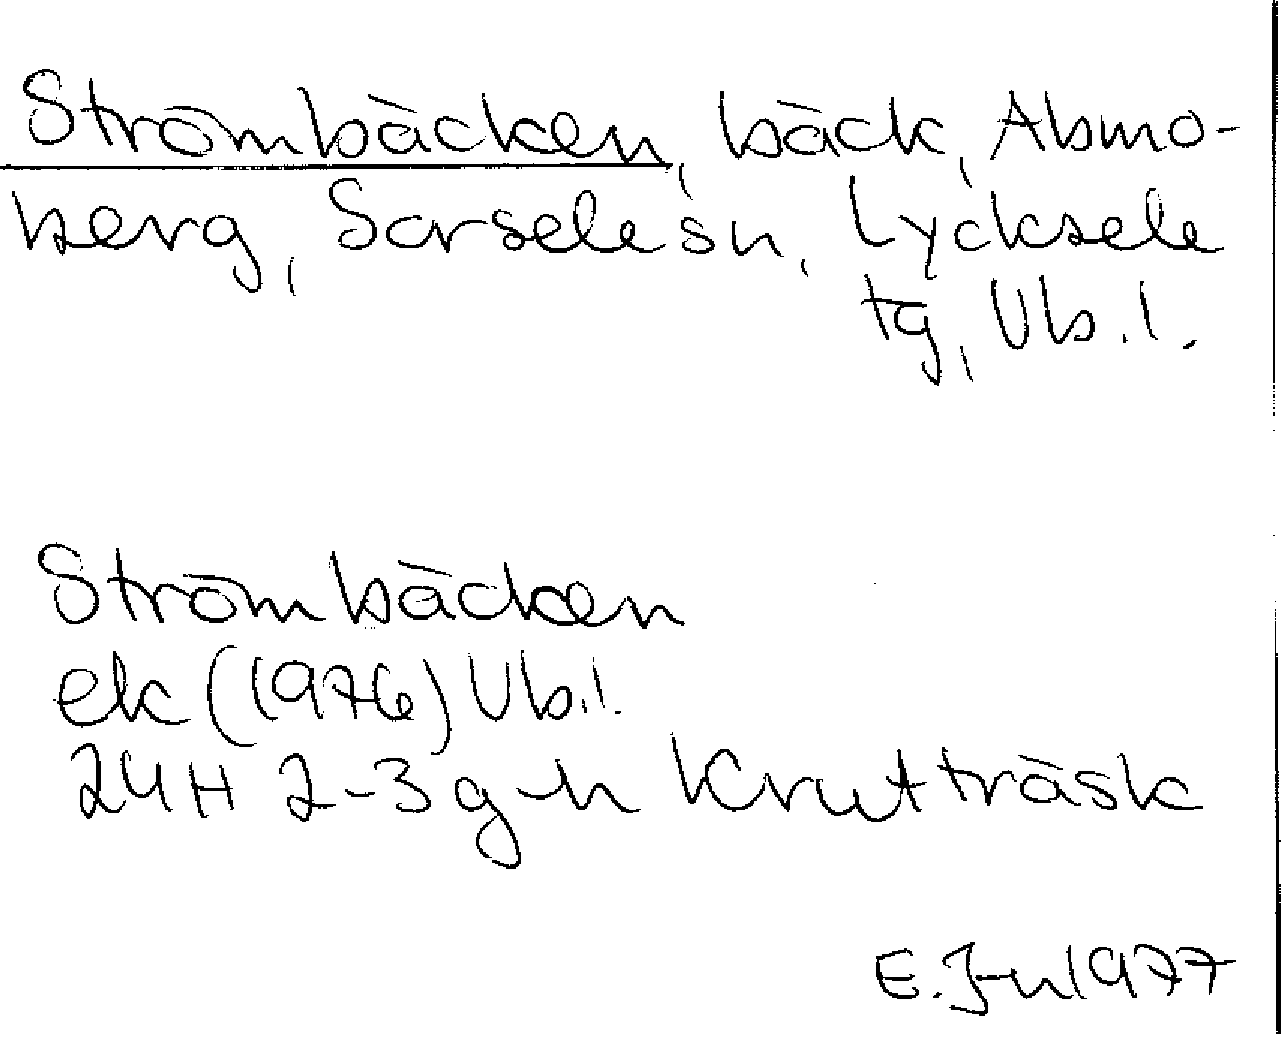 Strömbäcken, bäck, Abmo-
berg, Sorsele sn, Lycksele
tg, Vb.l.
Strömbäcken
ek (1976) Vb.l.
24H 2-3 g-h Krutträsk
E. J-n 1977